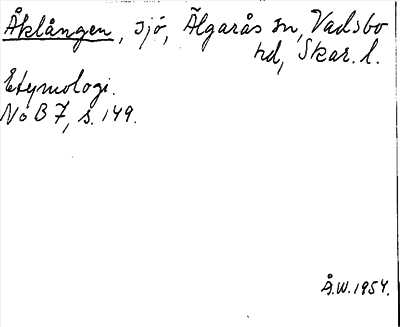 Åklången, sjö, Älgarås sn, Vadsbo
hd, Skar. l.
Etymologi.
NoB 7, s. 149.
Å.W. 1954.